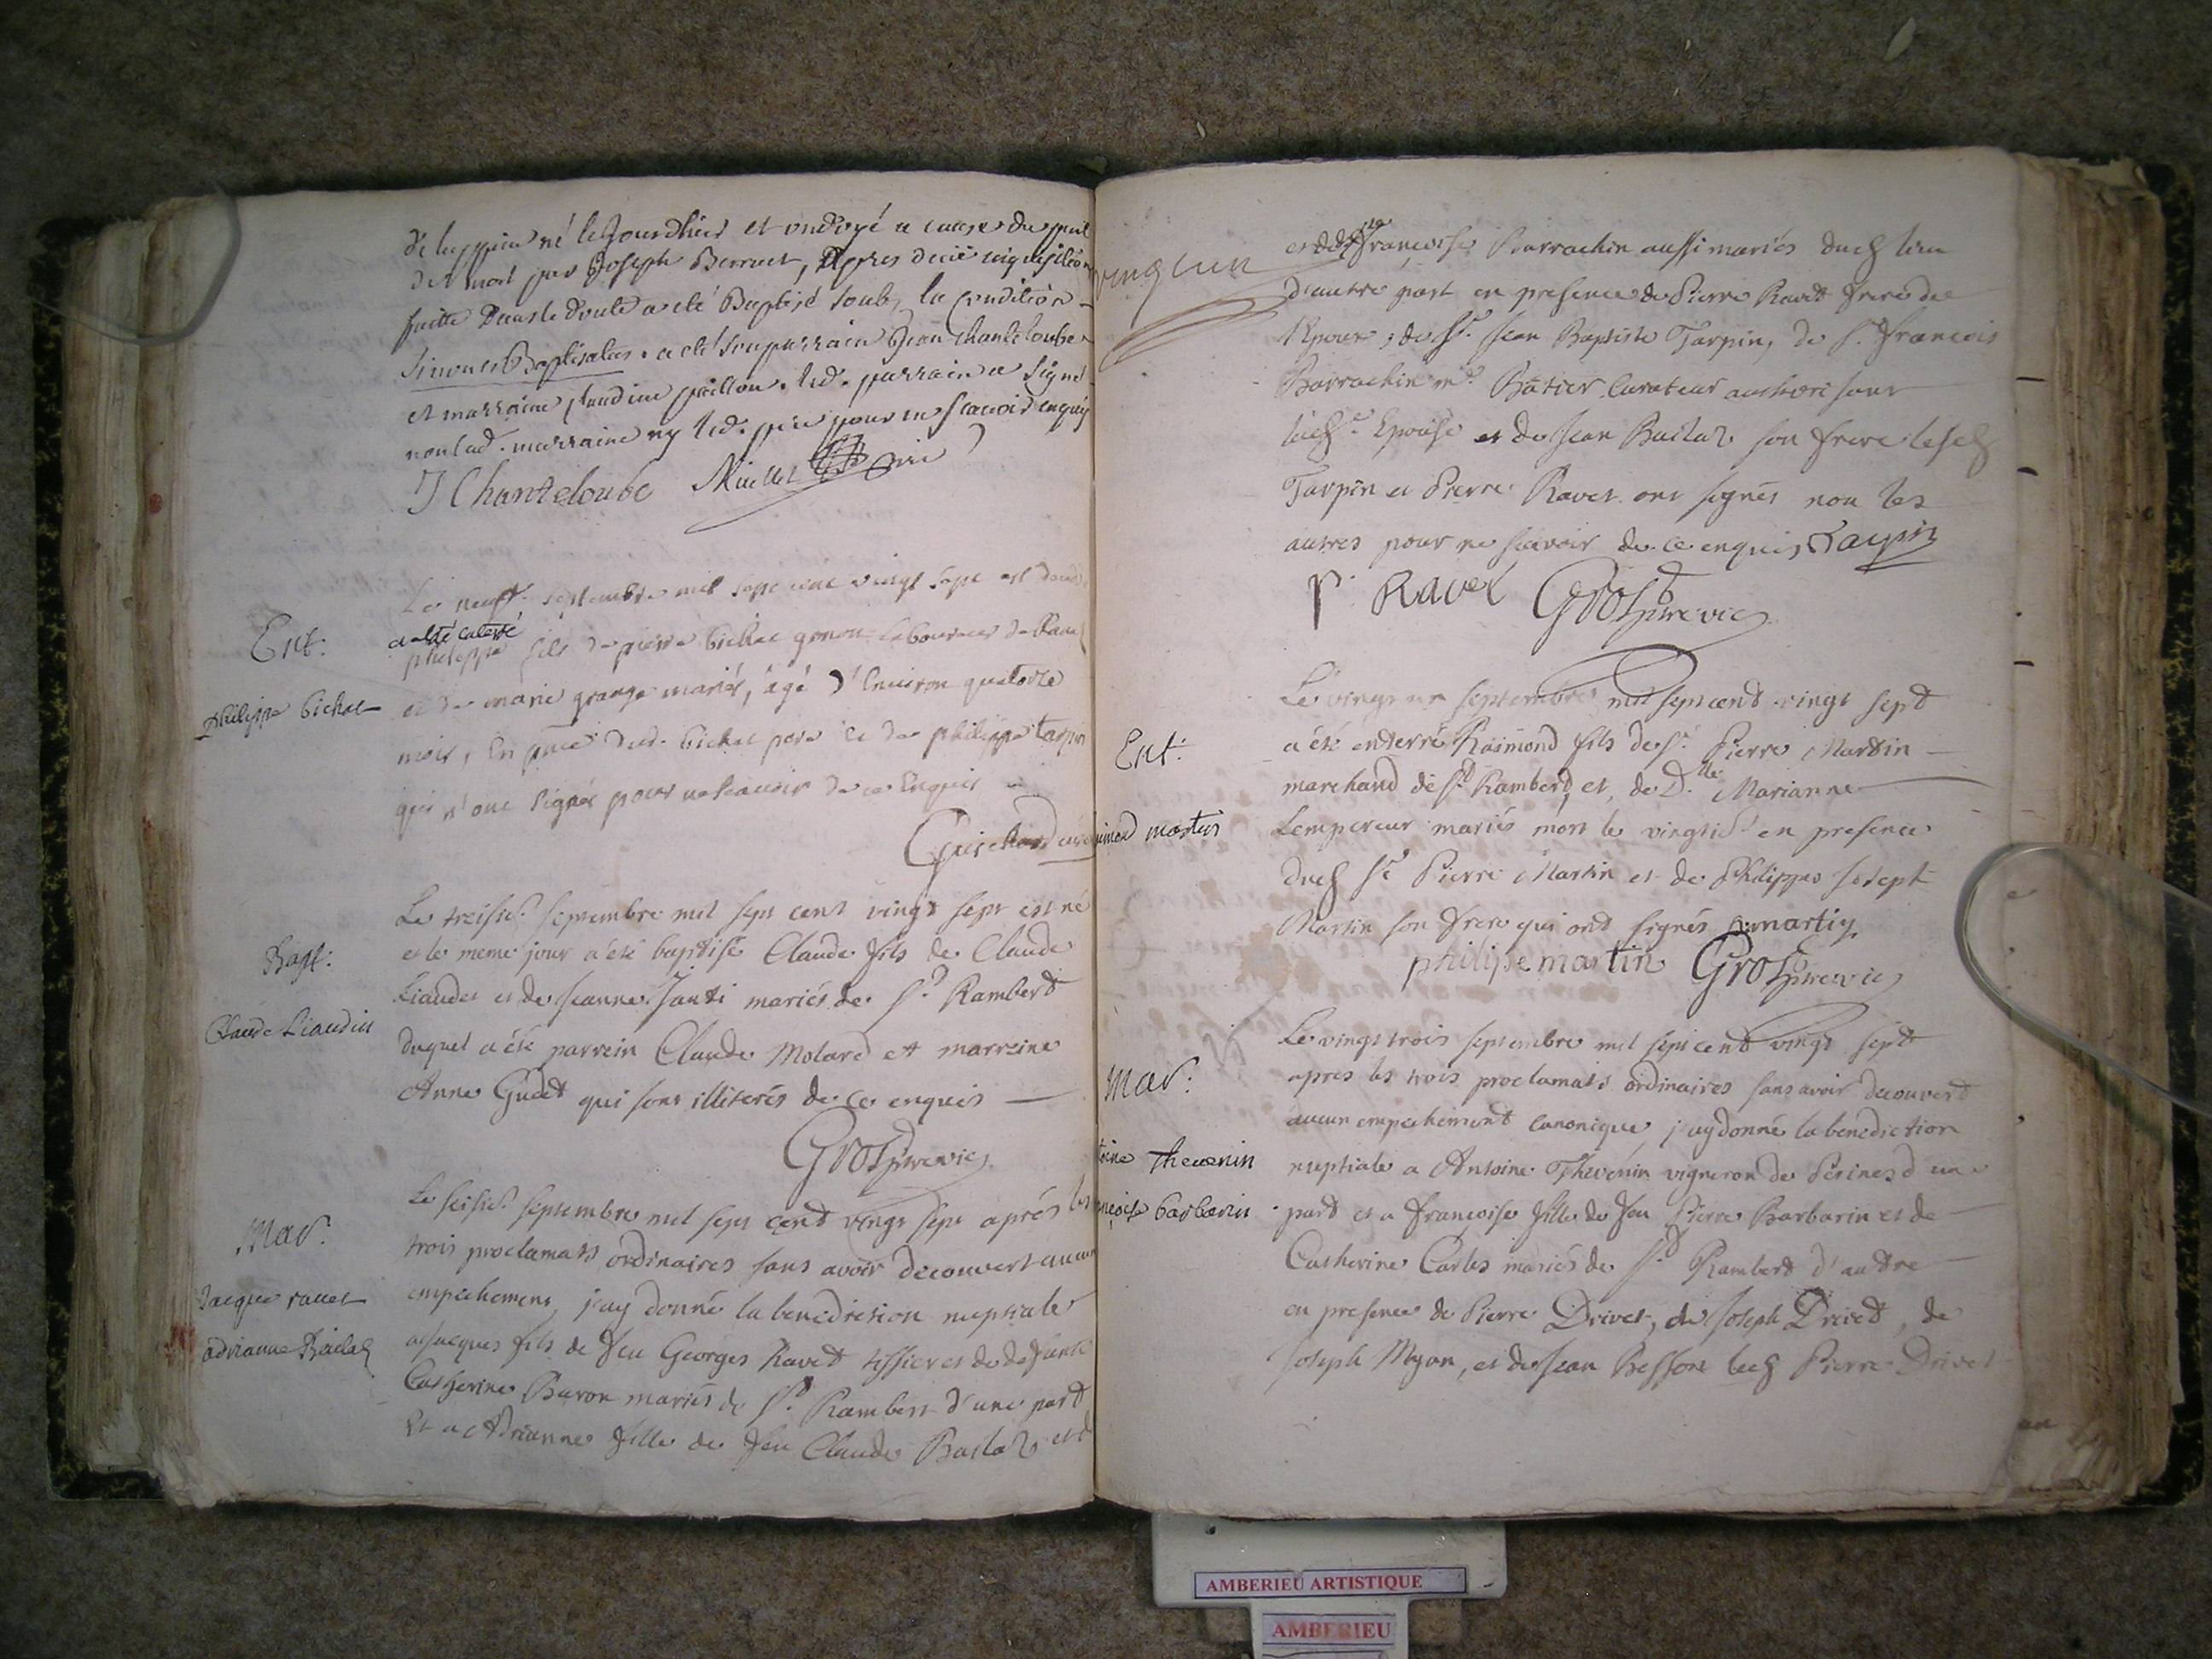 né le jourdhier et ondoyé a cause du peril
de mort par Joseph Berruet, Apres deüe inquisition
faitte Dans le doute a eté Baptisé soub la Condition
si non es Baptisatus. a eté son parrain Jean Chanteloube
et marraine Claudine paillon. led. parrain a signé
non lad. marraine ny led. pere pour ne scavoir enquis
J Chanteloube
Ent:
philippe bichat
Le neuf septembre mil sept cent vingt sept est decedé
a eté enterré
philippe fils de pierre bichat laboureur de
et de marie grange mariés, agé d'Environ quatorze
mois, En dud. bichat pere et de philippe tarpin
qui n'ont signés pour ne scavoir de ce Enquis
Guichard curé
Bapt:
Claude Liaudin
Le treisie. septembre mil sept cent vingt sept est né
et le meme jour a été baptisé Claude fils de Claude
Liaudet et de Jeanne Janti mariés de St. Rambert
duquel a été parrein Claude Molard et marreine
Anne Gudet qui sont illiterés de ce enquis
Mar:
Jacque ravet
adrianne Bailat
Le seisie. septembre mil sept cent vingt sept aprés les
trois proclamats ordinaires sans avoir decouvert aucun
empechement, j'ay donné la benediction nuptiale
a Jacques fils de feu Georges Ravet tissier et de defunte
Catherine Buron mariés de St. Rambert d'une part
Et a Adrianne fille de feu Claude Et de
vingt un
françoise Barrachin aussi mariés dud lieu
d'autre part en presence de Pierre Ravet frere de
l'Epoux, de Sr. Jean Baptiste Tarpin, de Sr. françois
Barrachin Curateur authorisant
ladte. Epouse et de Jean son frere lesd
Tarpin et Pierre Ravet ont signés non les
autres pour ne scavoir de ce enquis Tarpin
P. Ravet
Ent:
imond martin
Le vingt un septembre mil sept cent vingt sept
a été enterré Raimond fils de Sr. Pierre Martin
marchand de St. Rambert, et de Dlle. Marianne
Lempereur mariés mort le vingtie. en presence
dud Sr. Pierre Martin et de Philippes Joseph
Martin son frere qui ont signés P. martin
philippe martin
Mar:
toine Thevenin
nçoise barbarin
Le vingt trois septembre mil sept cent vingt sept
apres les trois proclamats ordinaires sans avoir decouvert
aucun empechement canonique, j'ay donné la benediction
nuptiale a Antoine Thevenin vigneron de d'une
part et a françoise fille de feu Pierre Barbarin et de
Catherine Carles mariés de St. Rambert d'autre
en presence de Pierre Drivet, de Joseph Drivet, de
Joseph Myon, et de Jean Bessont led Pierre Drivet
AMBERIEU ARTISTIQUE
AMBERIEU